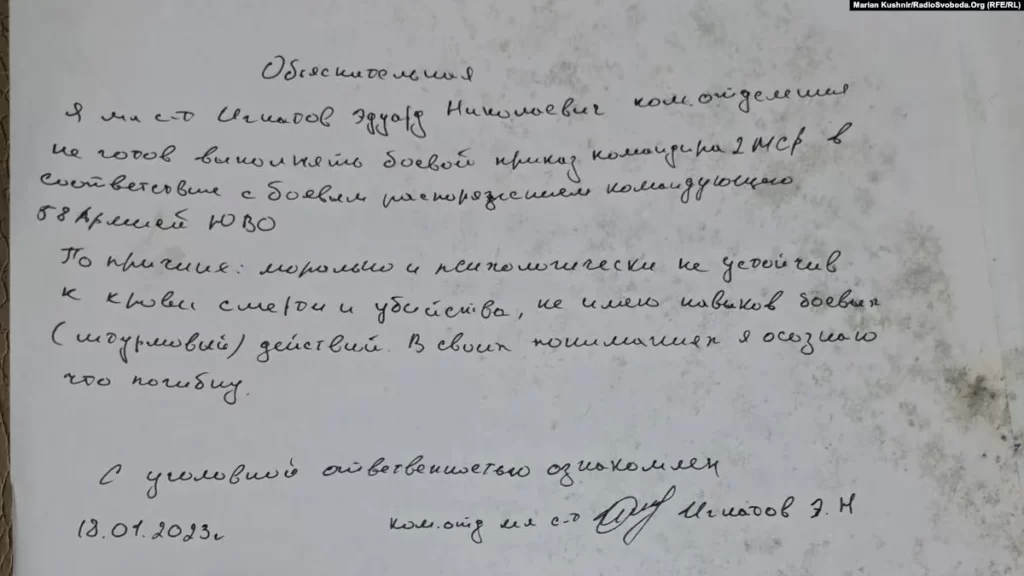 Marian Kushnir/RadioSvoboda.Org (RFE/RL)
Объяснительная
Я мл с-т Игнатов Эдуард Николаевич ком.отделения
не готов выполнять боевой приказ командира 2 МСР в
соответствие с боевым распоряжением командующего
58 Армией ЮВО
По причине: морально и психологически не устойчив
к крови смерти и убийства, не имею навыков боевых
(штурмовый) действий. В своих пониманиях я осознаю
что погибну.
С уголовной ответственностью ознакомлен
18.01.2023г
ком.отд мл с-т Игнатов Э. Н